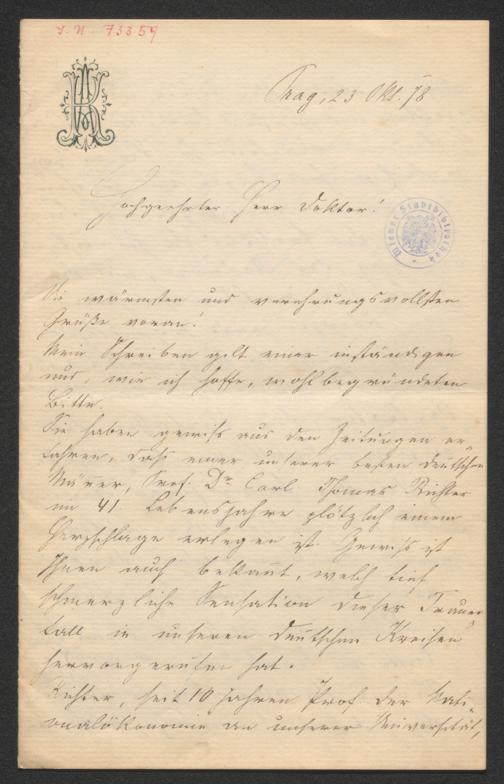 J. N. 73359
Prag, 23 Okt. 78
Hochgeehrter Herr Doktor!
Wiener Stadtbibliothek
Die wärmsten und verehrungsvollsten
Grüße voran!
Mein Schreiben gilt einer inständigen
und, wie ich hoffe, wohlbegründeten
Bitte.
Sie haben gewiß aus den Zeitungen er
fahren, daß einer unserer besten deutschen
Männer, Prof. Dr Carl Thomas Richter
im 41 Lebensjahre plötzlich einem
Herzschlage erlegen ist. Gewiß ist
Ihnen auch bekannt, welch tief
schmerzliche Sensation dieser Trauer
fall in unseren deutschen Kreisen
hervorgerufen hat.
Richter, seit 10 Jahren Prof. der Nati-
onalökonomie an unserer Universität,